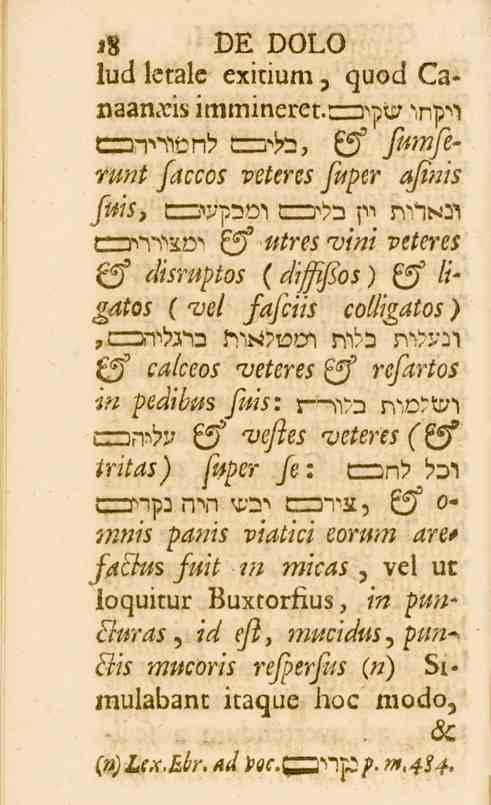 18 DE DOLO
lud letale exitium, quod Ca-
naanæis immineret. ויקחו שקים
בלים לחמוריהם, & ſumſe-
runt ſaccos veteres ſuper aſinis
ſuis, ונאדות יין בלים ומבקעים
ומצוררים & utres vini veteres
& disruptos ( diffiſſos ) & li-
gatos ( vel faſciis colligatos )
ונעלות בלות ומטלאות ברגליהם,
& calceos veteres & reſartos
in pedibus ſuis: ושלמות בלות
עליהם & veſtes veteres (&
tritas) ſuper ſe: וכל לחם
צידם יבש היה נקדים, & o-
mnis panis viatici eorum are-
factus fuit in micas, vel ut
loquitur Buxtorfius, in pun-
cturas, id eſt, mucidus, pun-
ctis mucoris reſperſus (n) Si-
mulabant itaque hoc modo,
&
(n) Lex. Ebr. ad voc. נקדים p. m. 484.